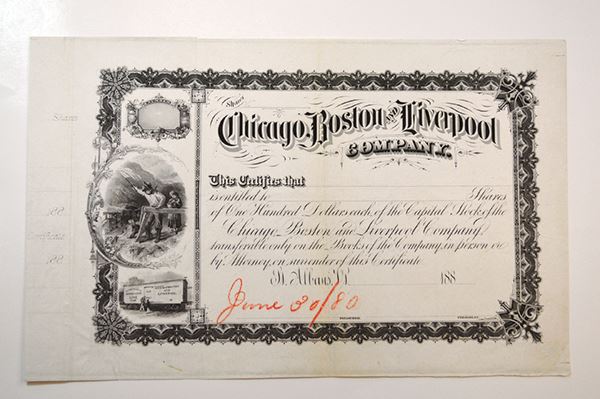 Shares
188
Certificate
188
Shares
Chicago, Boston AND Liverpool
COMPANY.
This Certifies that
is entitled to Shares
of One Hundred Dollars each, of the Capital Stock of the
Chicago, Boston and Liverpool Company,
transferable only on the Books of the Company, in person or
by Attorney, on surrender of this Certificate
St. Albans, Vt. 188
June 30/80